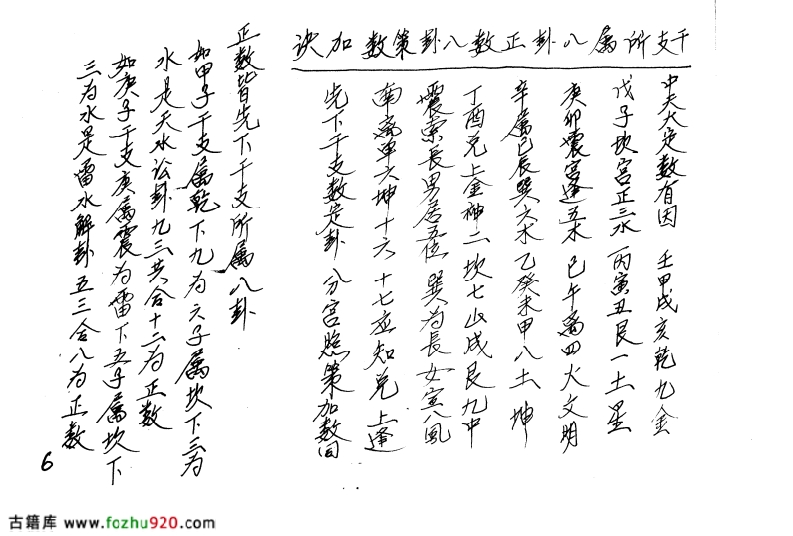 干支所属八卦正数八卦策数加决
中天大定数有因 壬甲戌亥乾九金
戊子坎宫正三水 丙寅丑艮一土星
庚卯震宫逢五木 已午离四火文明
辛属巳辰巽六木 乙癸未甲八土坤
丁酉兑上金神二 坎七山成艮九中
震索長男居五位 巽为長女宣八風
南离单六坤十六 十七应知兑上逢
先下干支数定卦 分宫照策加数同
正数皆先下干支所属八卦
如甲子干支属乾下九为六子属坎下三为
水是天水讼卦九三共合十二为正数
如庚子干支庚属震为雷下五子属坎下
三为水是雷水解卦五三合八为正数
6
古籍库 www.fozhu920.com